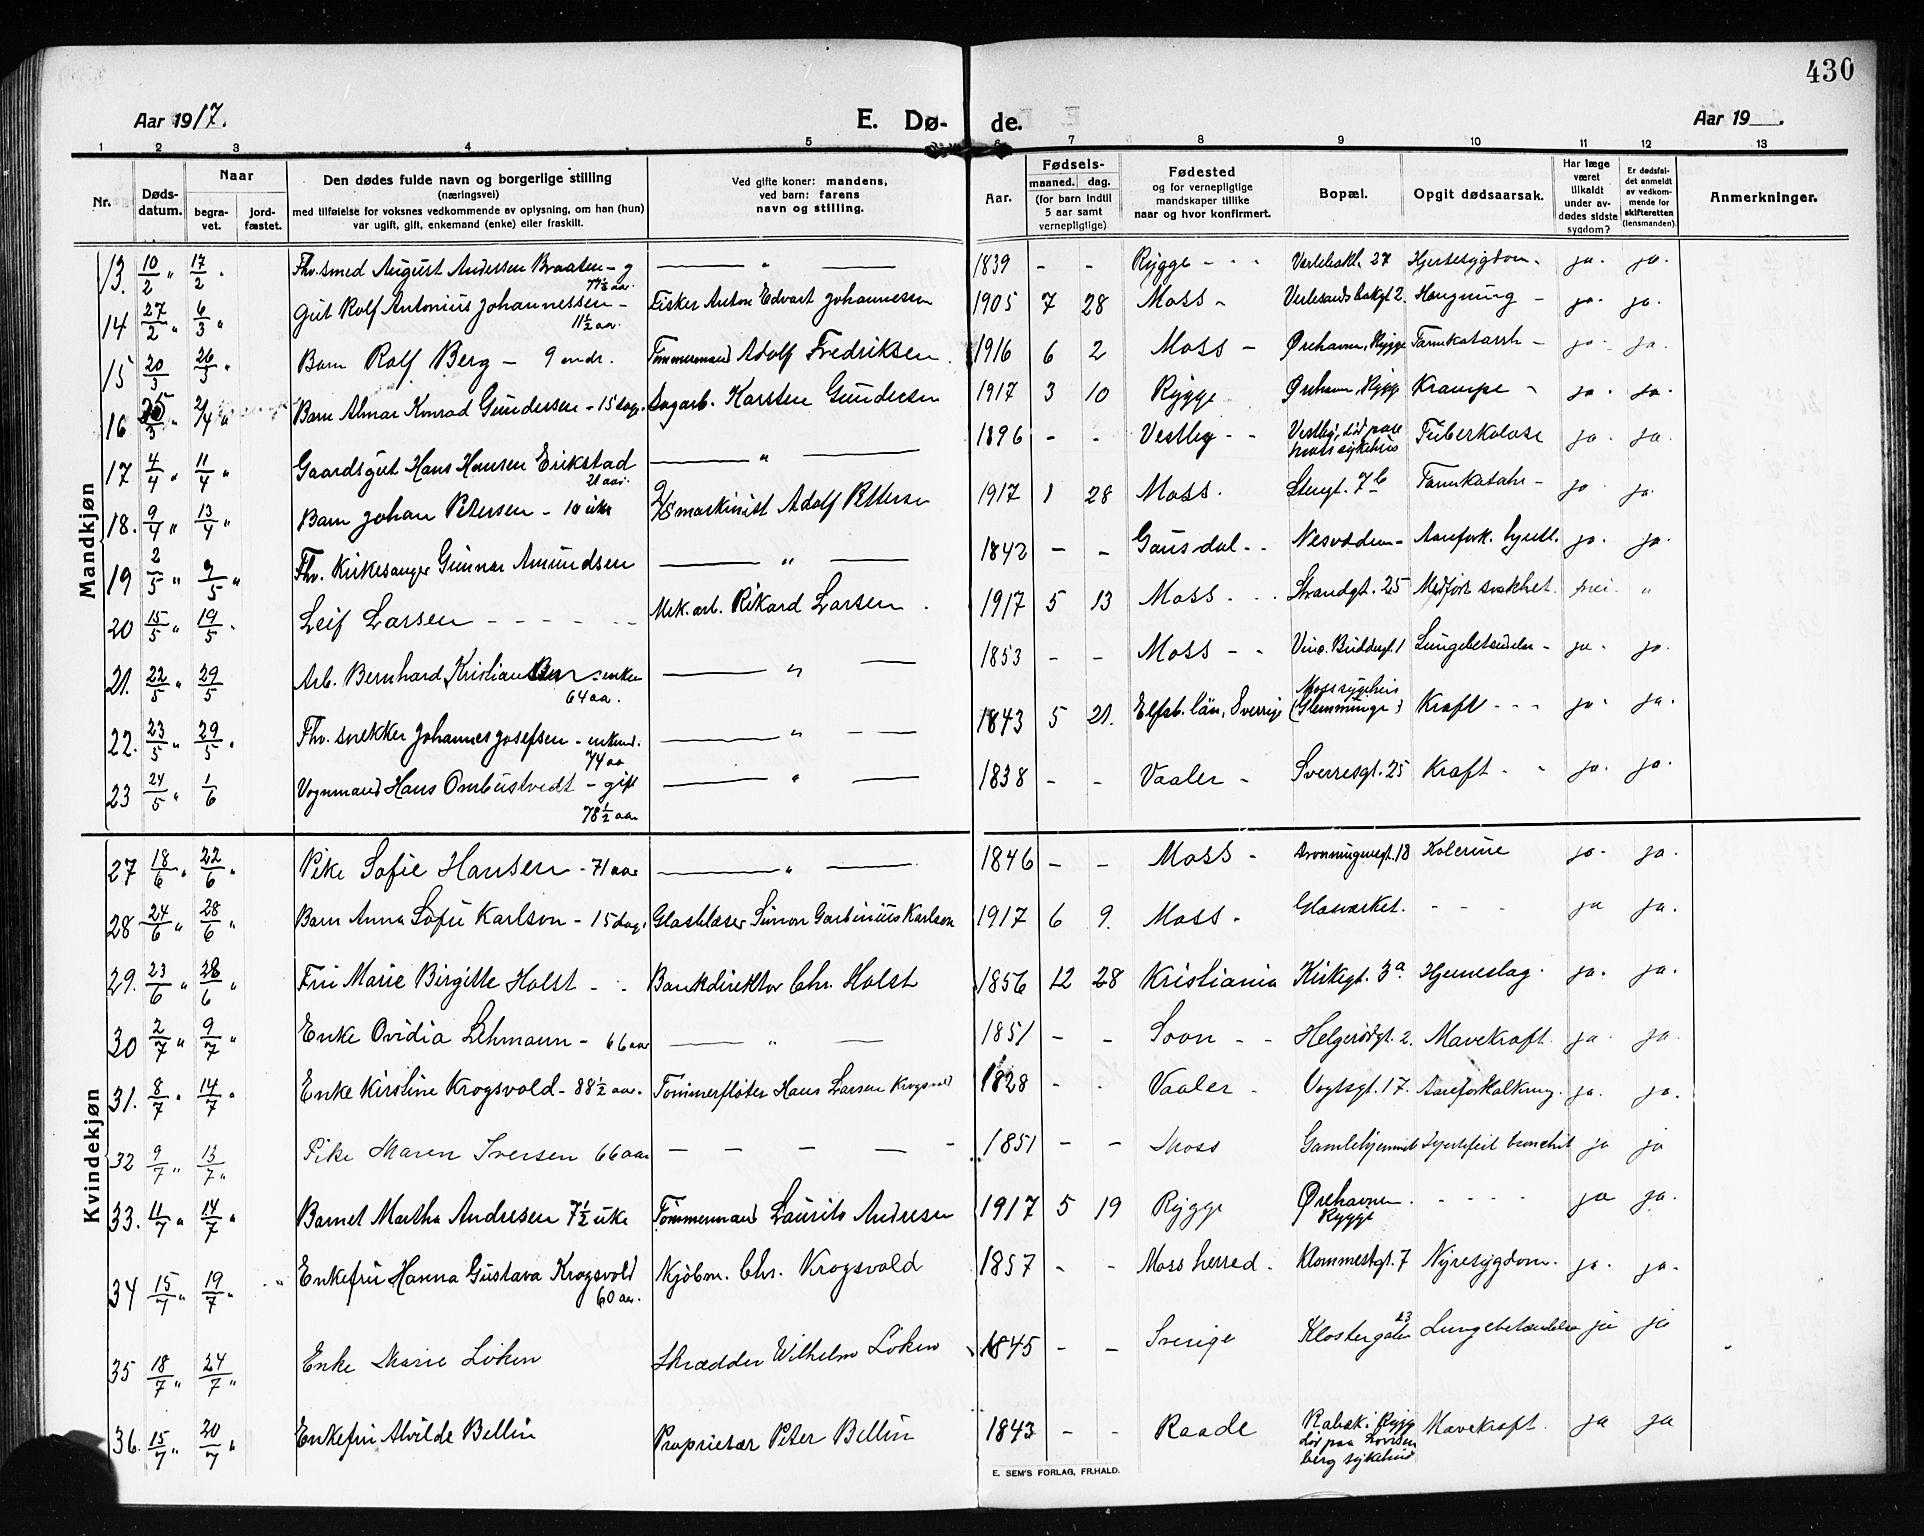 430
Aar 1917.
E. Dø- de.
Aar 19__.
1 2 3 4 5 6 7 8 9 10 11 12 13
Nr.
Døds-datum.
Naar
begra-vet.
jord-fæstet.
Den dødes fulde navn og borgerlige stilling
(næringsvei)
med tilføielse for voksnes vedkommende av oplysning, om han (hun)
var ugift, gift, enkemand (enke) eller fraskilt.
Ved gifte koner: mandens,
ved barn: farens
navn og stilling.
Aar.
Fødsels-
maaned. dag.
(for barn indtil
5 aar samt
vernepligtige)
Fødested
og for vernepligtige
mandskaper tillike
naar og hvor konfirmert.
Bopæl.
Opgit dødsaarsak.
Har læge
været
tilkaldt
under av-
dødes sidste
sygdom?
Er dødsfal-
det anmeldt
av vedkom-
mende for
skifteretten
(lensmanden).
Anmerkninger.
Mandkjøn
13. 10/2 " 17/2 " Fhv. smed August Andersen Braaten - g 77½ aar. — " — 1839 - - Rygge - - - 27 Hjertesygdom - ja. ja.
14 27/2 " 6/3 " Gut Rolf Antonius Johannessen - 11½ aar. Fisker Anton Edvart Johannessen 1905 7 28 Moss - 2. Hengning - ja. ja.
15 20/3 26/3 " Barn Rolf Berg - 9 mdr. Tømmermand Adolf Fredriksen. 1916 6 2 Moss - Ørehavn, Rygge Tarmkatarrh - ja. ja.
16 25/3 " 2/4 " Barn Almar Konrad Gundersen - 15 dag. Dagarb. Karsten Gundersen 1917 3 10 Rygge Ørehavn, Rygge Krampe - ja. ja.
17 4/4 " 11/4 " Gaardsgut Hans Hansen Erikstad 21 aar. — " — 1896 - - Vestby - - Vestby, død paa Moss sykehus Tuberkulose ja. ja.
18. 9/4 " 13/4 " Barn Johan Petersen - 10 uker maskinist Adolf Petersen 1917 1 28 Moss. Stengt. 7b Tarmkatarh - ja. ja.
19 2/5 " 9/5 " Fhv. Kirkesanger Gunnar Amundsen — " — 1842 - - Gausdal - - Aarefork. ja. ja.
20 15/5 " 19/5 . Leif Larsen - - - - - - Mek. arb. Rikard Larsen. 1917 5 13 Moss - . Strandgt. 25 Medfødt svakhet. nei. "
21. 22/5 " 29/5 Arb. Bernhard Kristiansen - enkem 64 aar. — " — 1853 - - Moss - - Vinc. Buddesgt. 1 Lungebetændelse - ja. ja.
22. 23/5 " 29/5 " Fhv. snekker Johannes Josefsen - enkmd. 74 aar — " - - 1843 5 21. Elfsb. län, Sverrige Moss sygehus (Glemminge) Kraft - - - ja. ja.
23 24/5 " 1/6 Vognmand Hans Ombustvedt - gift 78½ aar — " — 1838 - - Vaaler - Sverresgt. 25 Kraft - - ja. ja.
Kvindekjøn
27 18/6 " 22/6 " Pike Sofie Hansen - 71 aar — " — 1846 - - Moss - Dronningensgt. 18 Kolerine ja. ja.
28 24/6 " 28/6 " Barn Anna Sofie Karlson - 15 dag. Glasblaser Simon Karlson 1917 6 9. Moss - Glasværket. - - - ja ja.
29. 23/6 " 28/6 " Fru Marie Birgitte Holst - - Bankdirektør Chr. Holst 1856 12 28 Kristiania Kirkegt. 3a Hjerneslag. ja. ja.
30 2/7 " 9/7 " Enke Ovidia Lehmann - 66 aar — " — 1851 - - Soon - - Helgerødgt. 2. Mavekraft. ja. ja.
31. 8/7 " 14/7 " Enke Kirstine Krogsvold - 88½ aar. Tømmerfløter Hans Larsen Krogsvold 1828 - - Vaaler - Vogtsgt. 17. Aareforkalkning. ja. ja.
32 9/7 " 13/7 " Pike Maren Iversen 66 aar - - - - - 1851 - - Moss Gamlehjemmet Hjertefeil bronchit ja ja
33. 11/7 " 14/7 " Barnet Martha Andresen 7½ uke Tømmermand Laurits Andresen 1917 5 19 Rygge Ørehavnen. Rygge - - - - ja ja.
34 15/7 " 19/7 " Enkefru Hanna Gustava Krogsvold 60 aar. Kjøbm. Chr. Krogsvold 1857 - - Moss herred - 7 Nyresygdom. ja. ja.
35 18/7 " 24/7 " Enke Marie Løken Skrædder Wilhelm Løken 1845 - - Sverige Klostergaten 23 Lungebetændelse ja ja
36. 15/7 " 20/7 " Enkefru Alvilde Bellin Proprietær Peter Bellin 1843 - - Raade i Rygg død paa Lovisenberg sykehus Mavekraft. ja ja
E. SEM'S FORLAG, FR.HALD.